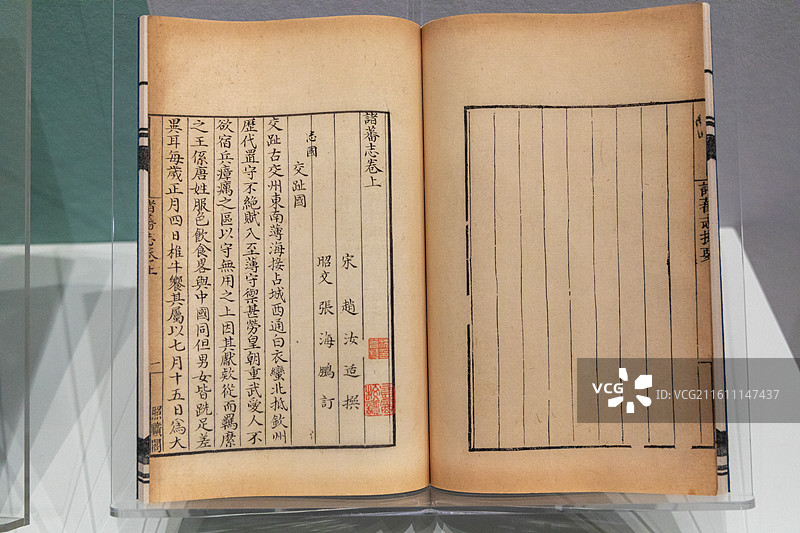 諸蕃志卷上
宋 趙汝适撰
昭文 張海鵬訂
志國
交趾國
交趾古交州東南薄海接占城西通白衣蠻北抵欽州
歷代置守不絕賦入至薄守禦甚勞皇朝重武愛人不
欲宿兵瘴癘之區以守無用之土因其獻欵從而羈縻
之王係唐姓服色飲食畧與中國同但男女皆跣足差
異耳每歲正月四日椎牛饗其屬以七月十五日爲大
諸蕃志卷上
一
照曠閣
諸蕃志提要
VCG
VCG211611147437